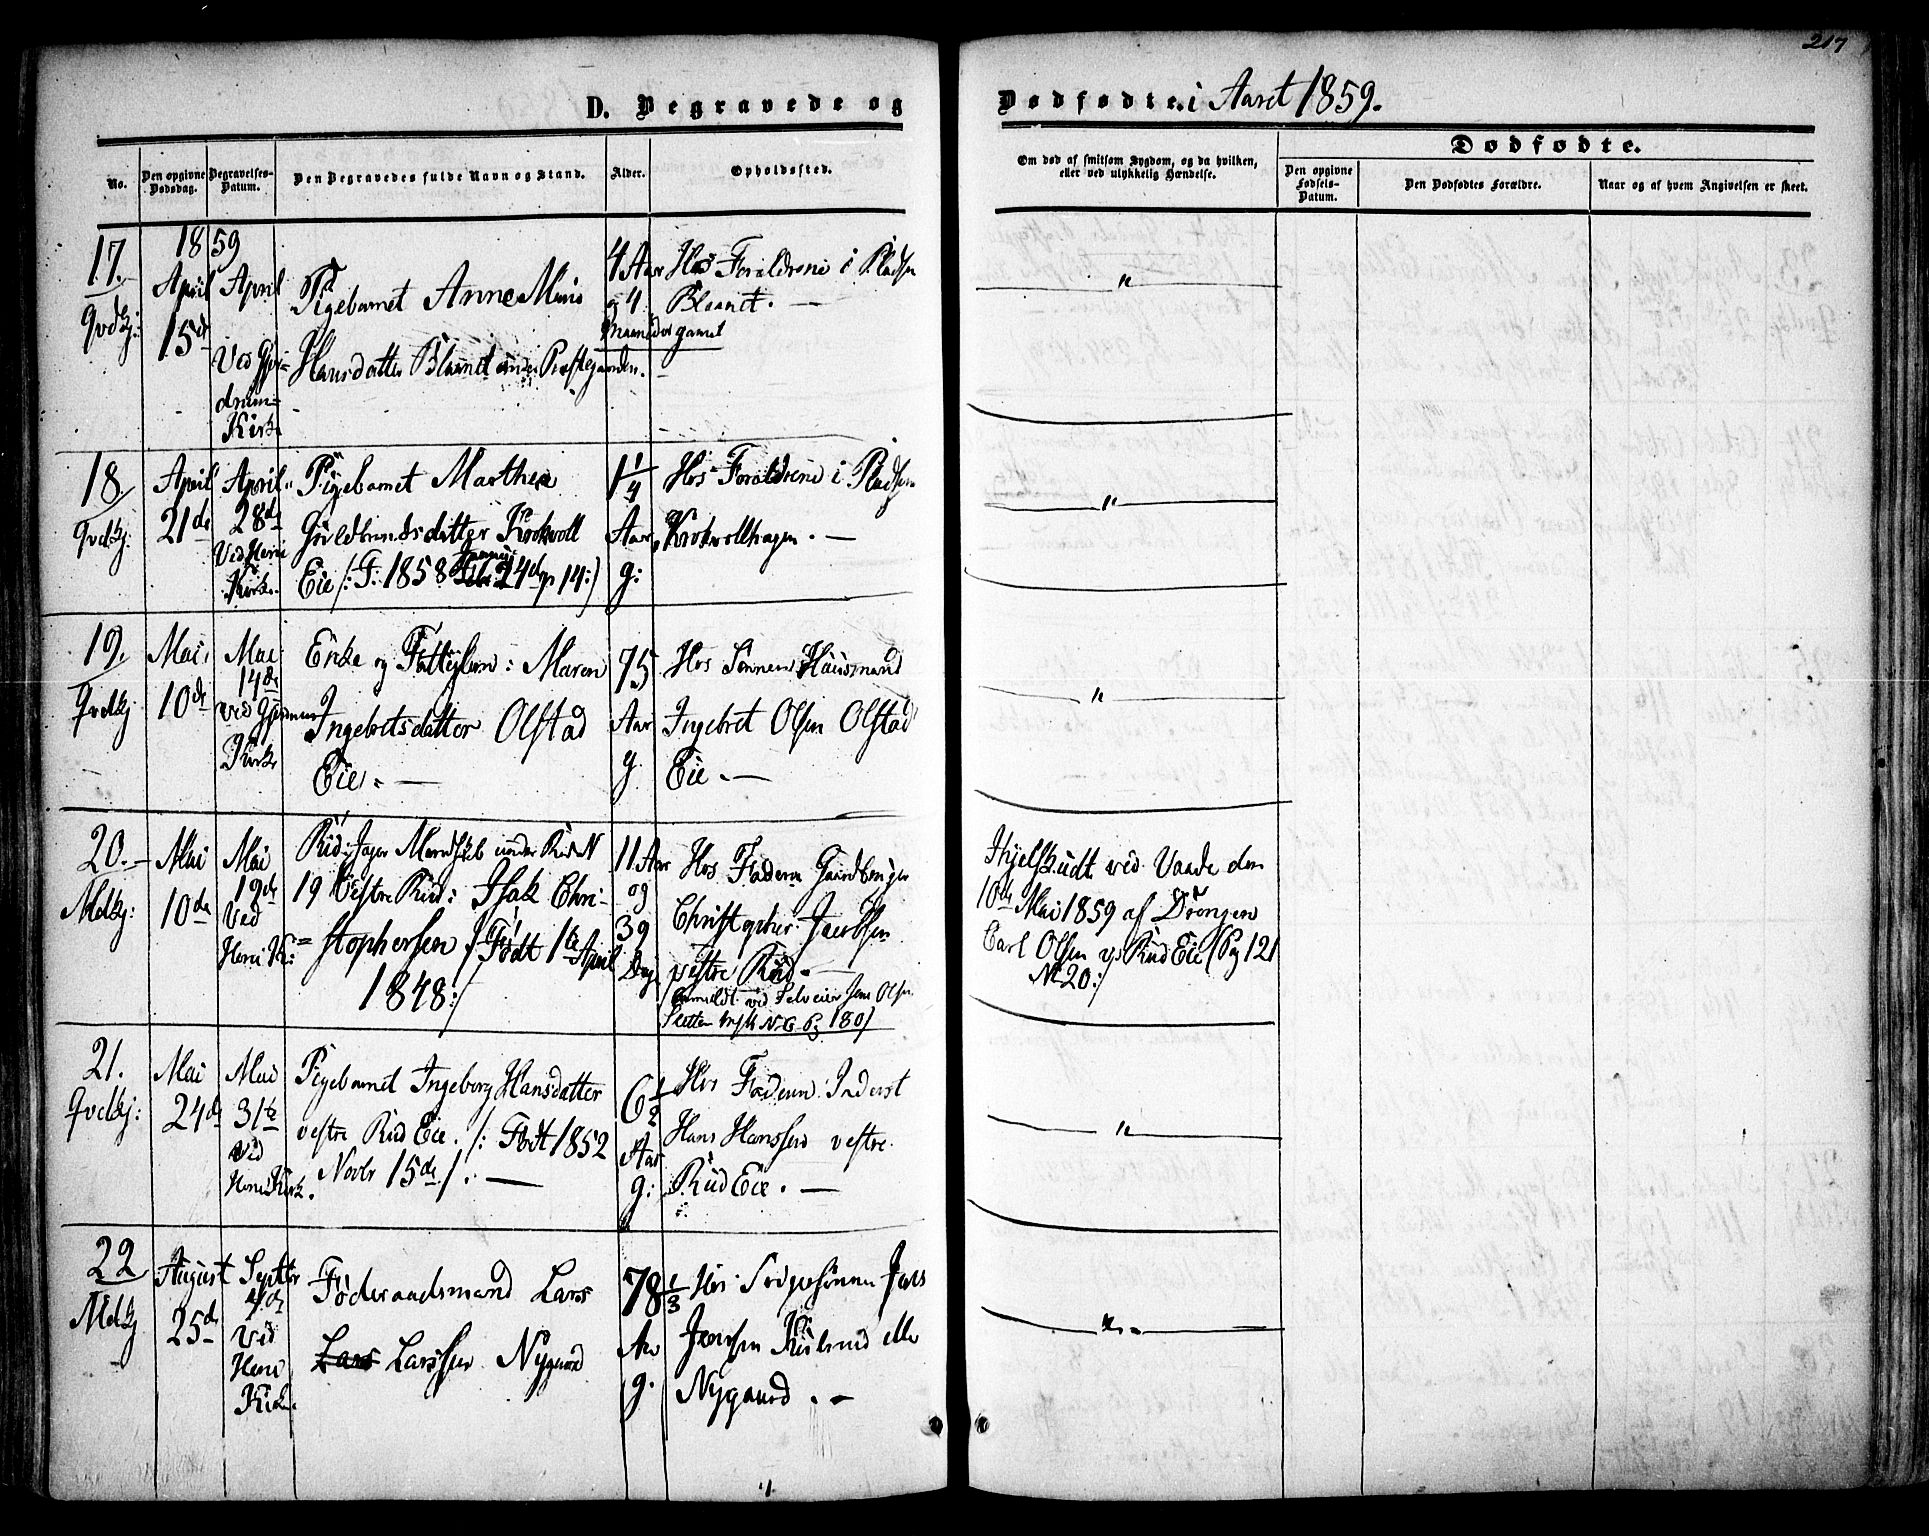 217
D. Begravede og Dødfødte i Aaret 1859.
No.
Den opgivne Dødsdag.
Begravelses-Datum.
Den Begravedes fulde Navn og Stand.
Alder.
Opholdssted.
Om død af smitsom Sygdom, og da hvilken, eller ved ulykkelig Hændelse.
Dødfødte.
Den opgivne Fødsels-Datum.
Den Dødfødtes Forældre.
Naar og af hvem Angivelsen er skeet.
17.
Qvdkj:
1859
April
15de
April
Ved Gjer=
drum=
Kirke
Pigebarnet Anne Marie
Hansdatter Blaanet under Præstegaarden.
4 Aar
og 4
Maaneder gamel
Hos Forældrene i Pladsen
Blaanet. —
"
18.
Qvdkj:
April
21de
April
28de
Ved Heni
Kirke.
Pigebarnet Marthea
Guldbrandsdatter Krokvoll
Eie /: F. 1858 24de p 14:)
1 1/4
Aar
g:
Hos Forældrene i Pladsen
Krokvollhagen. —
"
19.
Qvdkj
Mai
10de
Mai
14de
ved Gjerdrum
Kirke
Enke og Fattiglem: Maren
Ingebretsdatter Olstad
Eie. —
75
Aar
g.
Hos Sønnen Huusmand
Ingebret Olsen Olstad
Eie. —
"
20. —
Mdkj:
Mai
10de
Mai
19de
Ved
Heni K:
Rud: Jager Mandskab under Rud N
19 Vestre Rud: Isak Chri-
stophersen /: Født 1te April
1848:/
11 Aar
og
39
Dag
Hos Faderen Gaardbruger
Christopher Jacobsen
vestre Rud. —
(Anmeldt ved Selveier Jens Olsen
Sletten N. 6 Pg 180)
Ihjelskudt ved Vaade den
10de Mai 1859 af Drengen
Carl Olsen vs Rud Eie (Pg 121
No 20:/
21.
Qvdkj:
Mai
24de
Mai
31te
ved
Heni Kirk.
Pigebarnet Ingeborg Hansdatter
vestre Rud Eie. /: Født 1852
Novbr 15de /. —
6 1/2
Aar
g:
Hos Faderen Inderst
Hans Hanssen vestre
Rud Eie. —
"
22
Mdkj
August
25de
Septbr
4de
Ved
Heni
Kirke.
Føderaadsmand Lars
Larssen Nygaard
78 1/3
Aar
g.
Hos Svigersønnen Jens
Jenssen Kulsrud eller
Nygaard. —
"